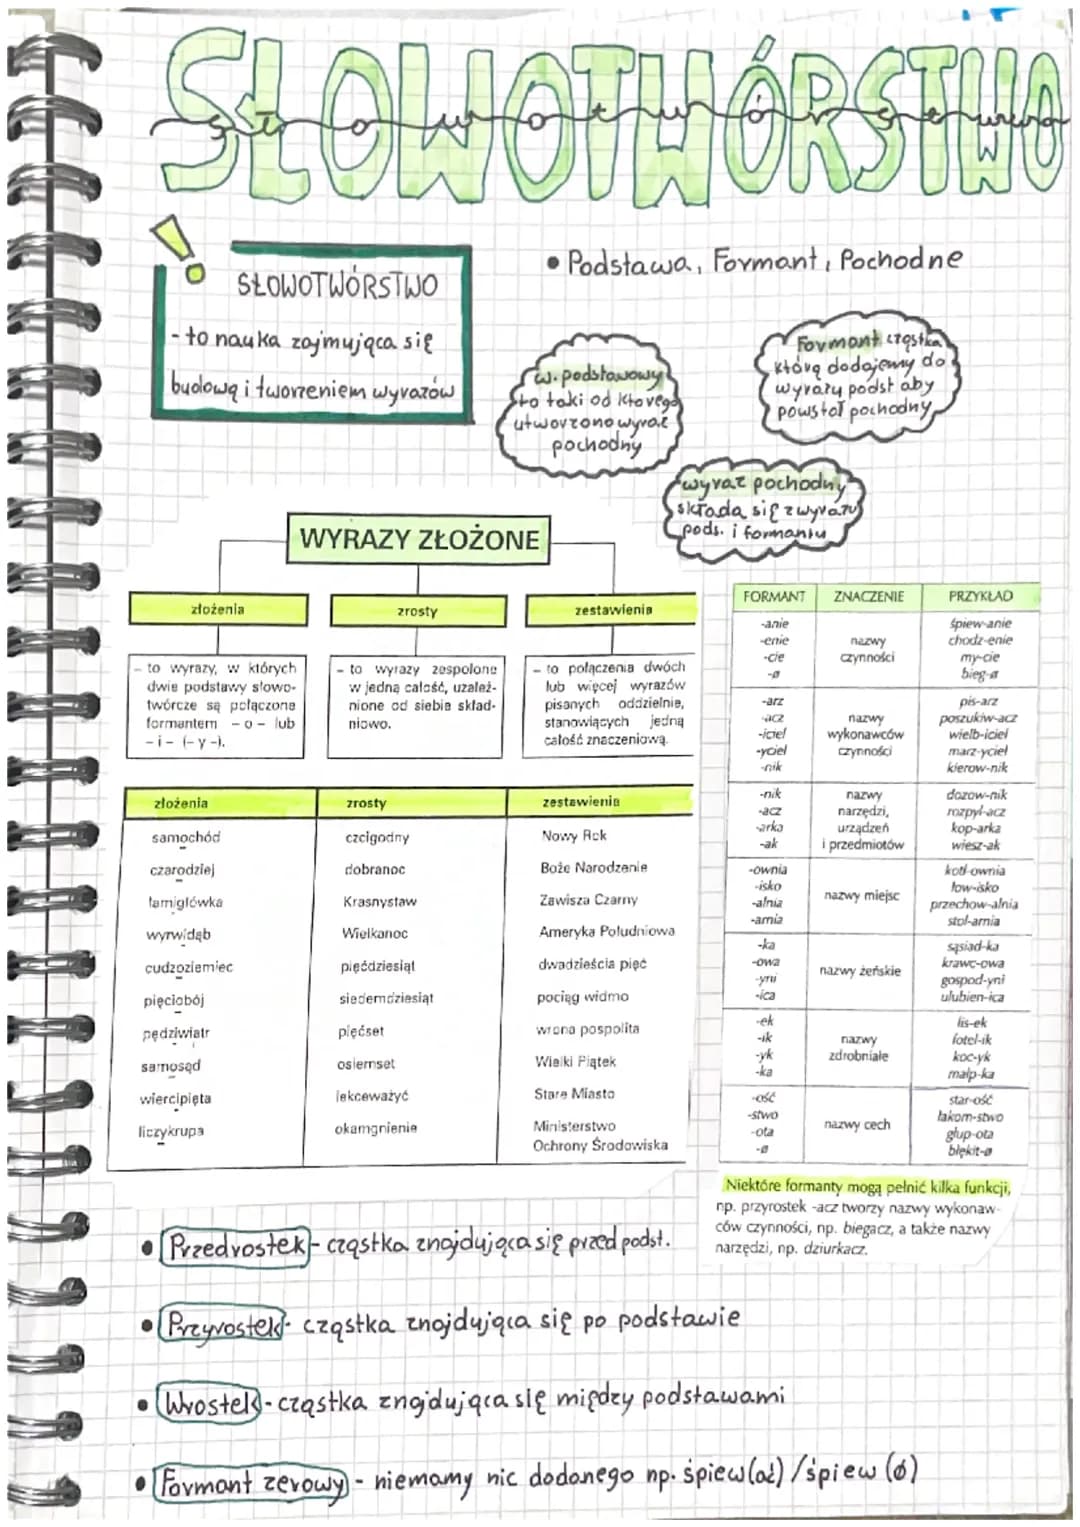 SŁOWOTWÓRSTWO
słowotwórstwo
SŁOWOTWÓRSTWO
- to nauka zajmująca się
budową i tworzeniem wyrazów
• Podstawa, Formant, Pochodne
w. podstawowy
to taki od którego
utworzono wyraz
pochodny
Formant cząstka
którą dodajemy do
wyrazu podst aby
powstał pochodny
wyraz pochodny
składa się z wyrazu
pods. i formantu
WYRAZY ZŁOŻONE
złożenia
- to wyrazy, w których
dwie podstawy słowo-
twórcze są połączone
formantem -o- lub
-i- (-y-).
zrosty
- to wyrazy zespolone
w jedną całość, uzależ-
nione od siebie skład-
niowo.
zestawienia
- to połączenia dwóch
lub więcej wyrazów
pisanych oddzielnie,
stanowiących jedną
całość znaczeniową.
złożenia zrosty zestawienia
samochód czcigodny Nowy Rok
czarodziej dobranoc Boże Narodzenie
łamigłówka Krasnystaw Zawisza Czarny
wyrwidąb Wielkanoc Ameryka Południowa
cudzoziemiec pięćdziesiąt dwadzieścia pięć
pięciobój siedemdziesiąt pociąg widmo
pędziwiatr pięćset wrona pospolita
samosąd osiemset Wielki Piątek
wiercipięta lekceważyć Stare Miasto
liczykrupa okamgnienie Ministerstwo
Ochrony Środowiska
FORMANT ZNACZENIE PRZYKŁAD
-anie śpiew-anie
-enie nazwy chodz-enie
-cie czynności my-cie
-ø bieg-ø
-arz pis-arz
-acz nazwy poszukiw-acz
-iciel wykonawców wielb-iciel
-yciel czynności marz-yciel
-nik kierow-nik
-nik nazwy dozow-nik
-acz narzędzi, rozpyl-acz
-arka urządzeń kop-arka
-ak i przedmiotów wiesz-ak
-ownia kotł-ownia
-isko nazwy miejsc łow-isko
-alnia przechow-alnia
-arnia stol-arnia
-ka sąsiad-ka
-owa nazwy żeńskie krawc-owa
-yni gospod-yni
-ica ulubien-ica
-ek lis-ek
-ik nazwy fotel-ik
-yk zdrobniałe koc-yk
-ka małp-ka
-ość star-ość
-stwo nazwy cech łakom-stwo
-ota głup-ota
-ø błękit-ø
Niektóre formanty mogą pełnić kilka funkcji,
np. przyrostek -acz tworzy nazwy wykonaw-
ców czynności, np. biegacz, a także nazwy
narzędzi, np. dziurkacz.
• Przedrostek - cząstka znajdująca się przed podst.
• Przyrostek - cząstka znajdująca się po podstawie
• Wrostek - cząstka znajdująca się między podstawami
• Formant zerowy - niemamy nic dodanego np. śpiew(ać) / śpiew (ø)